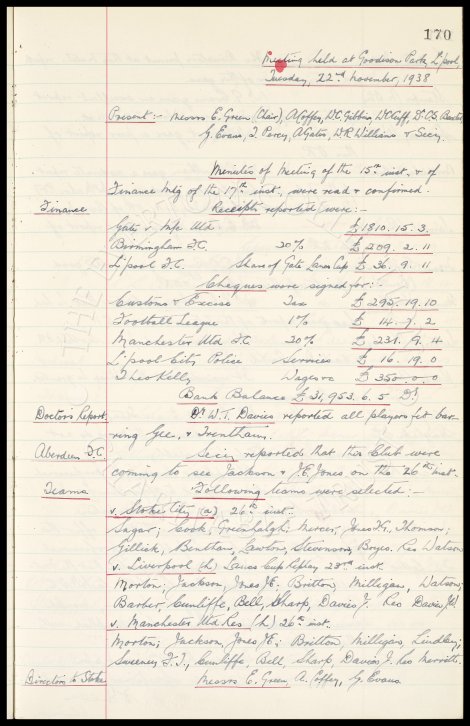 170
Meeting held at Goodison Park, L'pool,
Tuesday, 22nd November, 1938
Present:- Messrs E. Green (Chair), A. Coffey, W.C. Gibbins, W.C. Cuff, Dr. C.S. Baxter
G. Evans, T. Percy, A. Gates, W.R. Williams & Secy.
Minutes of Meeting of the 15th inst. & of
Finance Mtg of the 17th inst., were read & confirmed.
Finance
Receipts reported were:-
Gate v. M/c Utd. £1810. 15. 3.
Birmingham F.C. 20% £209. 2. 11
L'pool F.C. Share of Gate Lancs Cup £36. 9. 11
Cheques were signed for:-
Customs & Excise Tax £295. 19. 10
Football League 1% £14. 7. 2
Manchester Utd F.C. 20% £231. 9. 4
L'pool City Police Services £16. 19. 0
Theo Kelly Wages £350. 0. 0
Bank Balance £31,953. 6. 5 Dr.
Doctor's Report.
Dr W.T. Davies reported all players fit bar-
ring Gee, & Trentham.
Aberdeen F.C.
Secy reported that this Club were
coming to see Jackson & J.E. Jones on the 26th inst.
Teams
Following teams were selected:-
v. Stoke City (a) 26th inst.
Sagar; Cook, Greenhalgh; Mercer, Jones T.G., Thomson;
Gillick, Bentham, Lawton, Stevenson, Boyes. Res Watson
v. Liverpool (h) Lancs Cup Replay 23rd inst.
Morton; Jackson, Jones J.E.; Britton, Milligan, Watson;
Barber, Cunliffe, Bell, Sharp, Davies J. Res Davies J.W.
v. Manchester Utd Res (h) 26th inst.
Morton; Jackson, Jones J.E.; Britton, Milligan, Lindley;
Sweeney F.T., Cunliffe, Bell, Sharp, Davies J. Res Merritt.
Directors to Stoke
Messrs E. Green, A. Coffey, G. Evans.